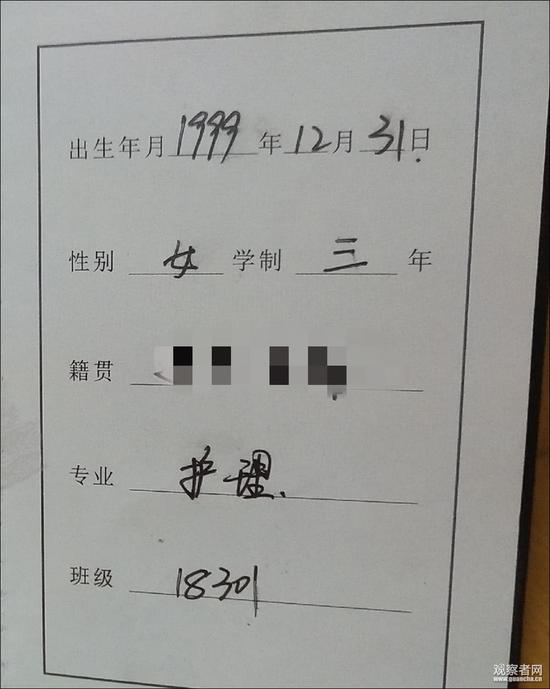 出生年月 1999 年 12 月 31 日
性别 女 学制 三 年
籍贯
专业 护理
班级 18301
观察者网
www.guancha.cn